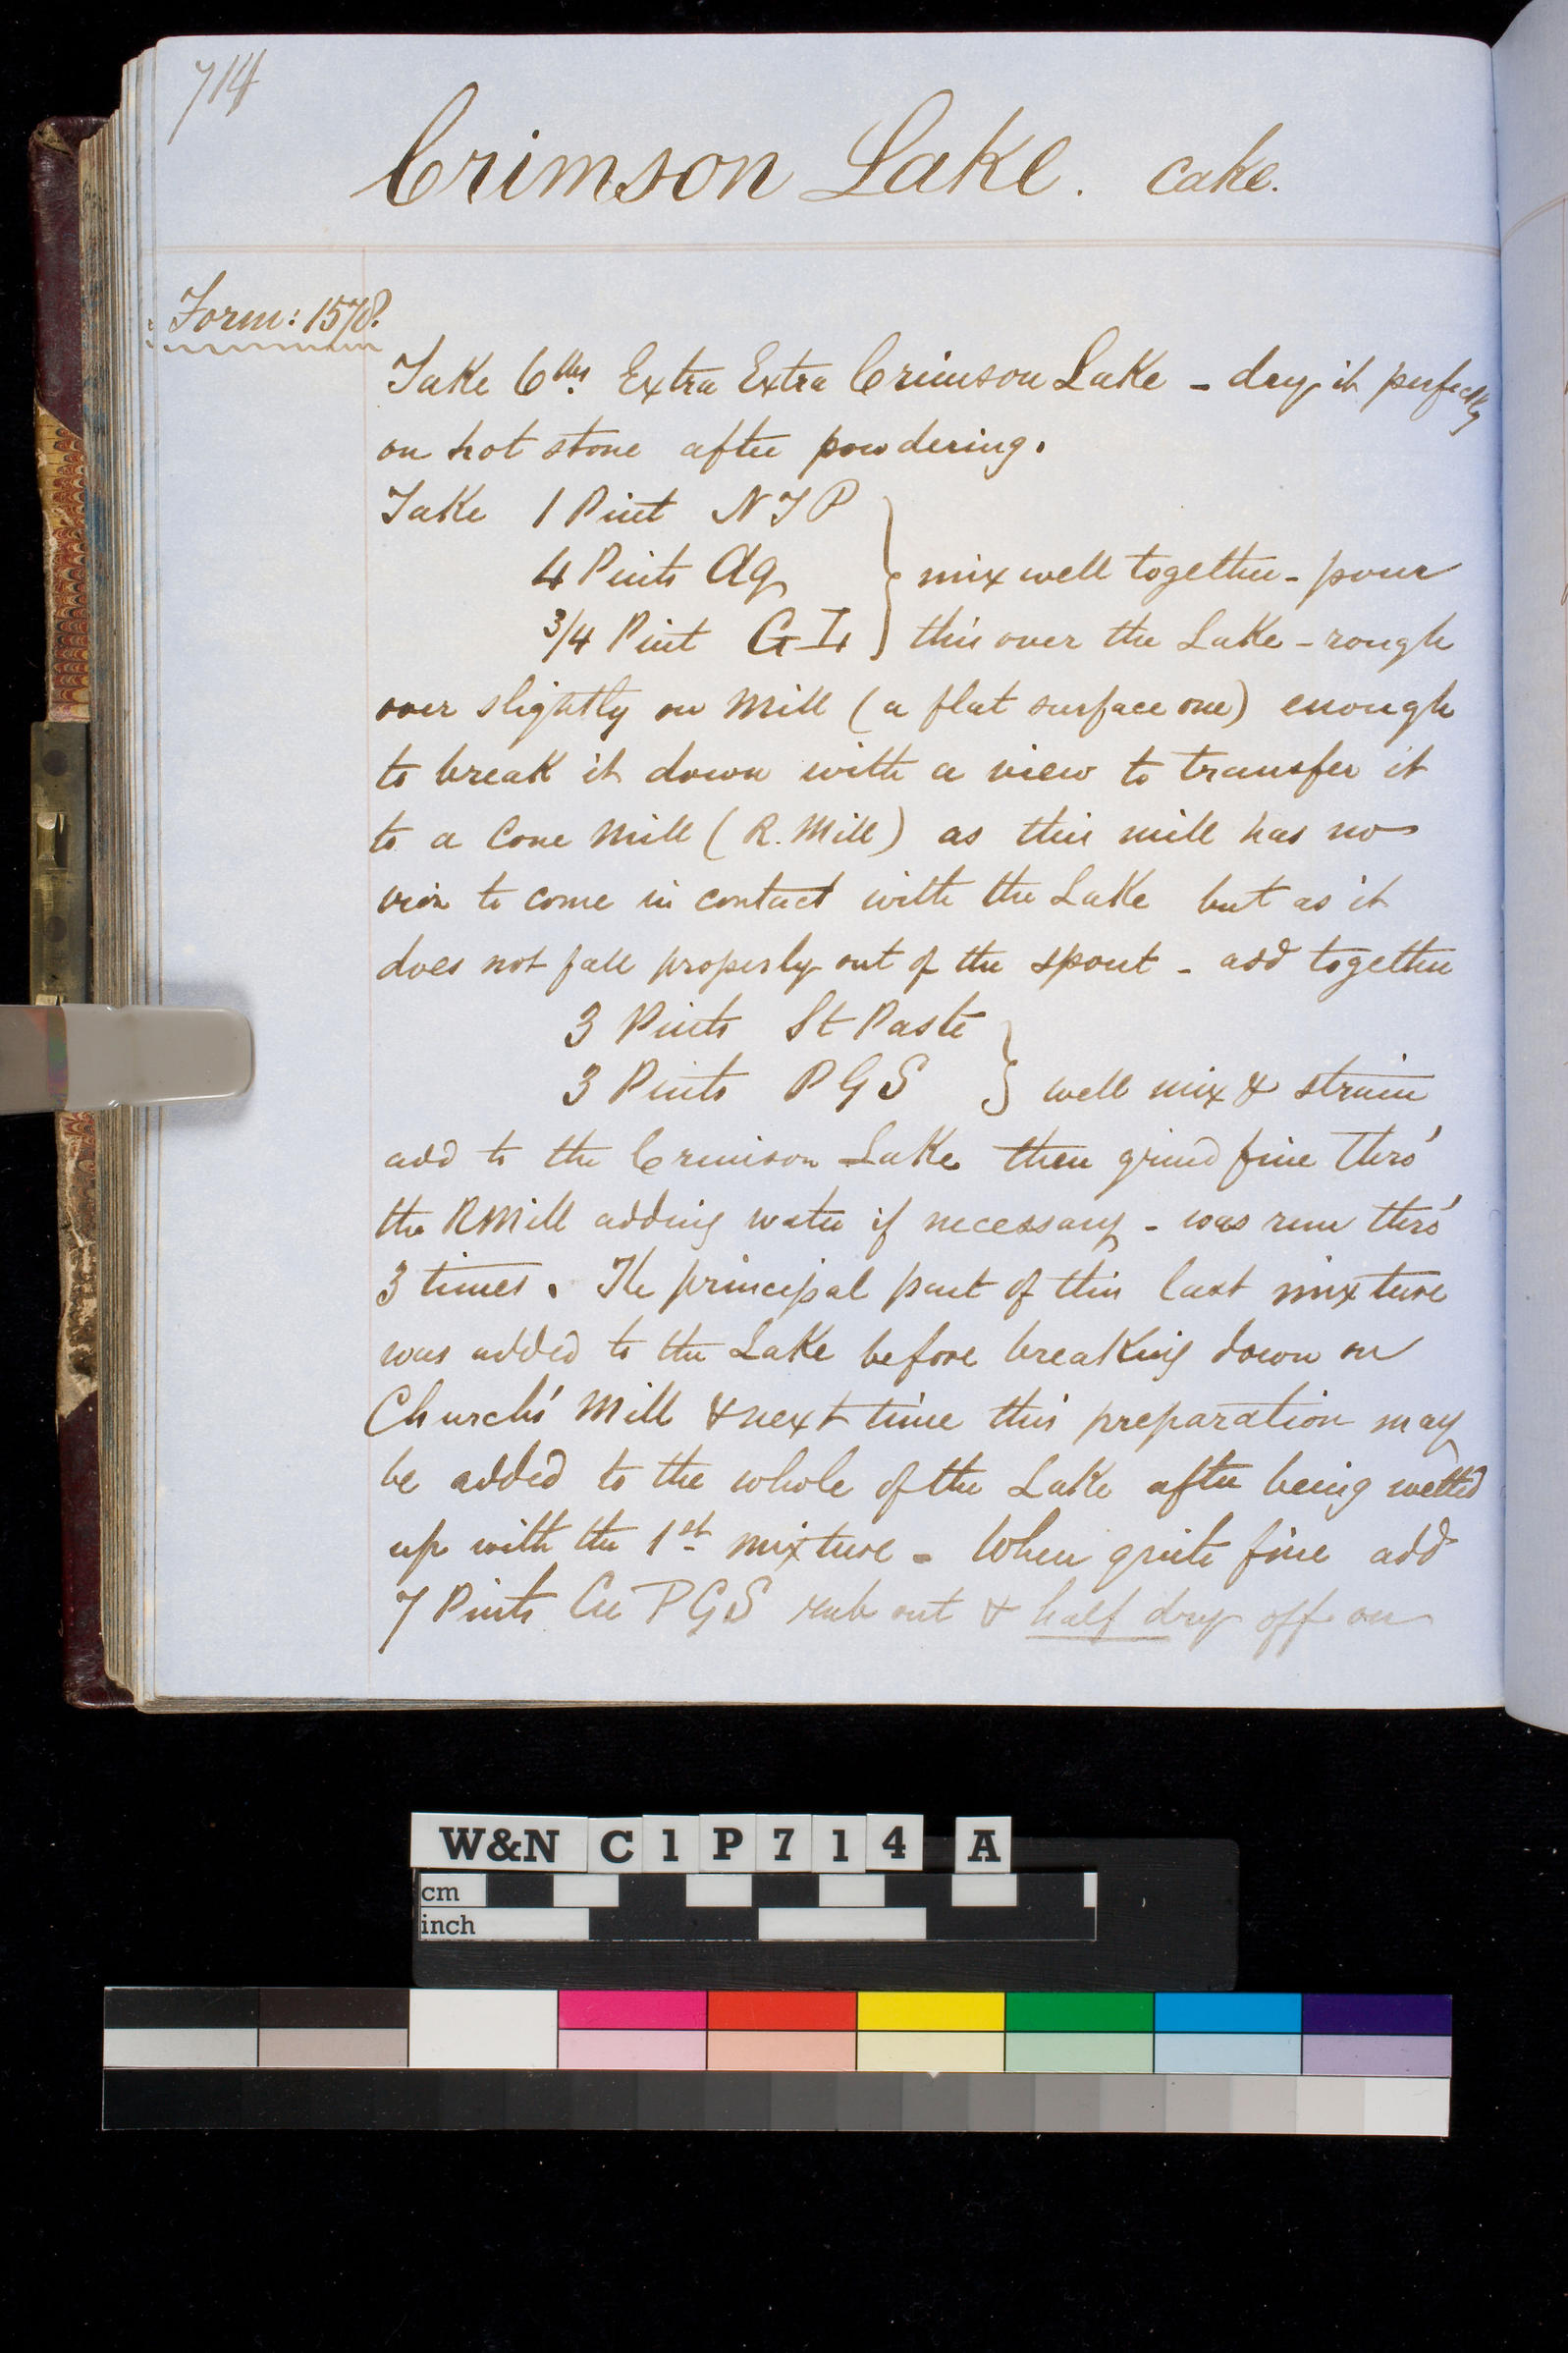 714
Crimson Lake. Cake.
Form: 1578.
Take 6 lbs. Extra Extra Crimson Lake - dry it perfectly
on hot stone after powdering.
Take 1 Pint N T P
4 Pints Aq } mix well together - pour
3/4 Pint G I } this over the Lake - rough
over slightly on Mill (a flat surface one) enough
to break it down with a view to transfer it
to a Cone Mill (R. Mill) as this mill has no
iron to come in contact with the Lake but as it
does not fall properly out of the spout - add together
3 Pints St Paste
3 Pints P G S } well mix & strain
add to the Crimson Lake then grind fine thro'
the R Mill adding water if necessary - was run thro'
3 times. The principal part of this last mixture
was added to the Lake before breaking down on
Church's Mill & next time this preparation may
be added to the whole of the Lake after being wetted
up with the 1st mixture - When quite fine add
7 Pints P G S rub out & half dry off on
W&N C1P714 A
cm
inch